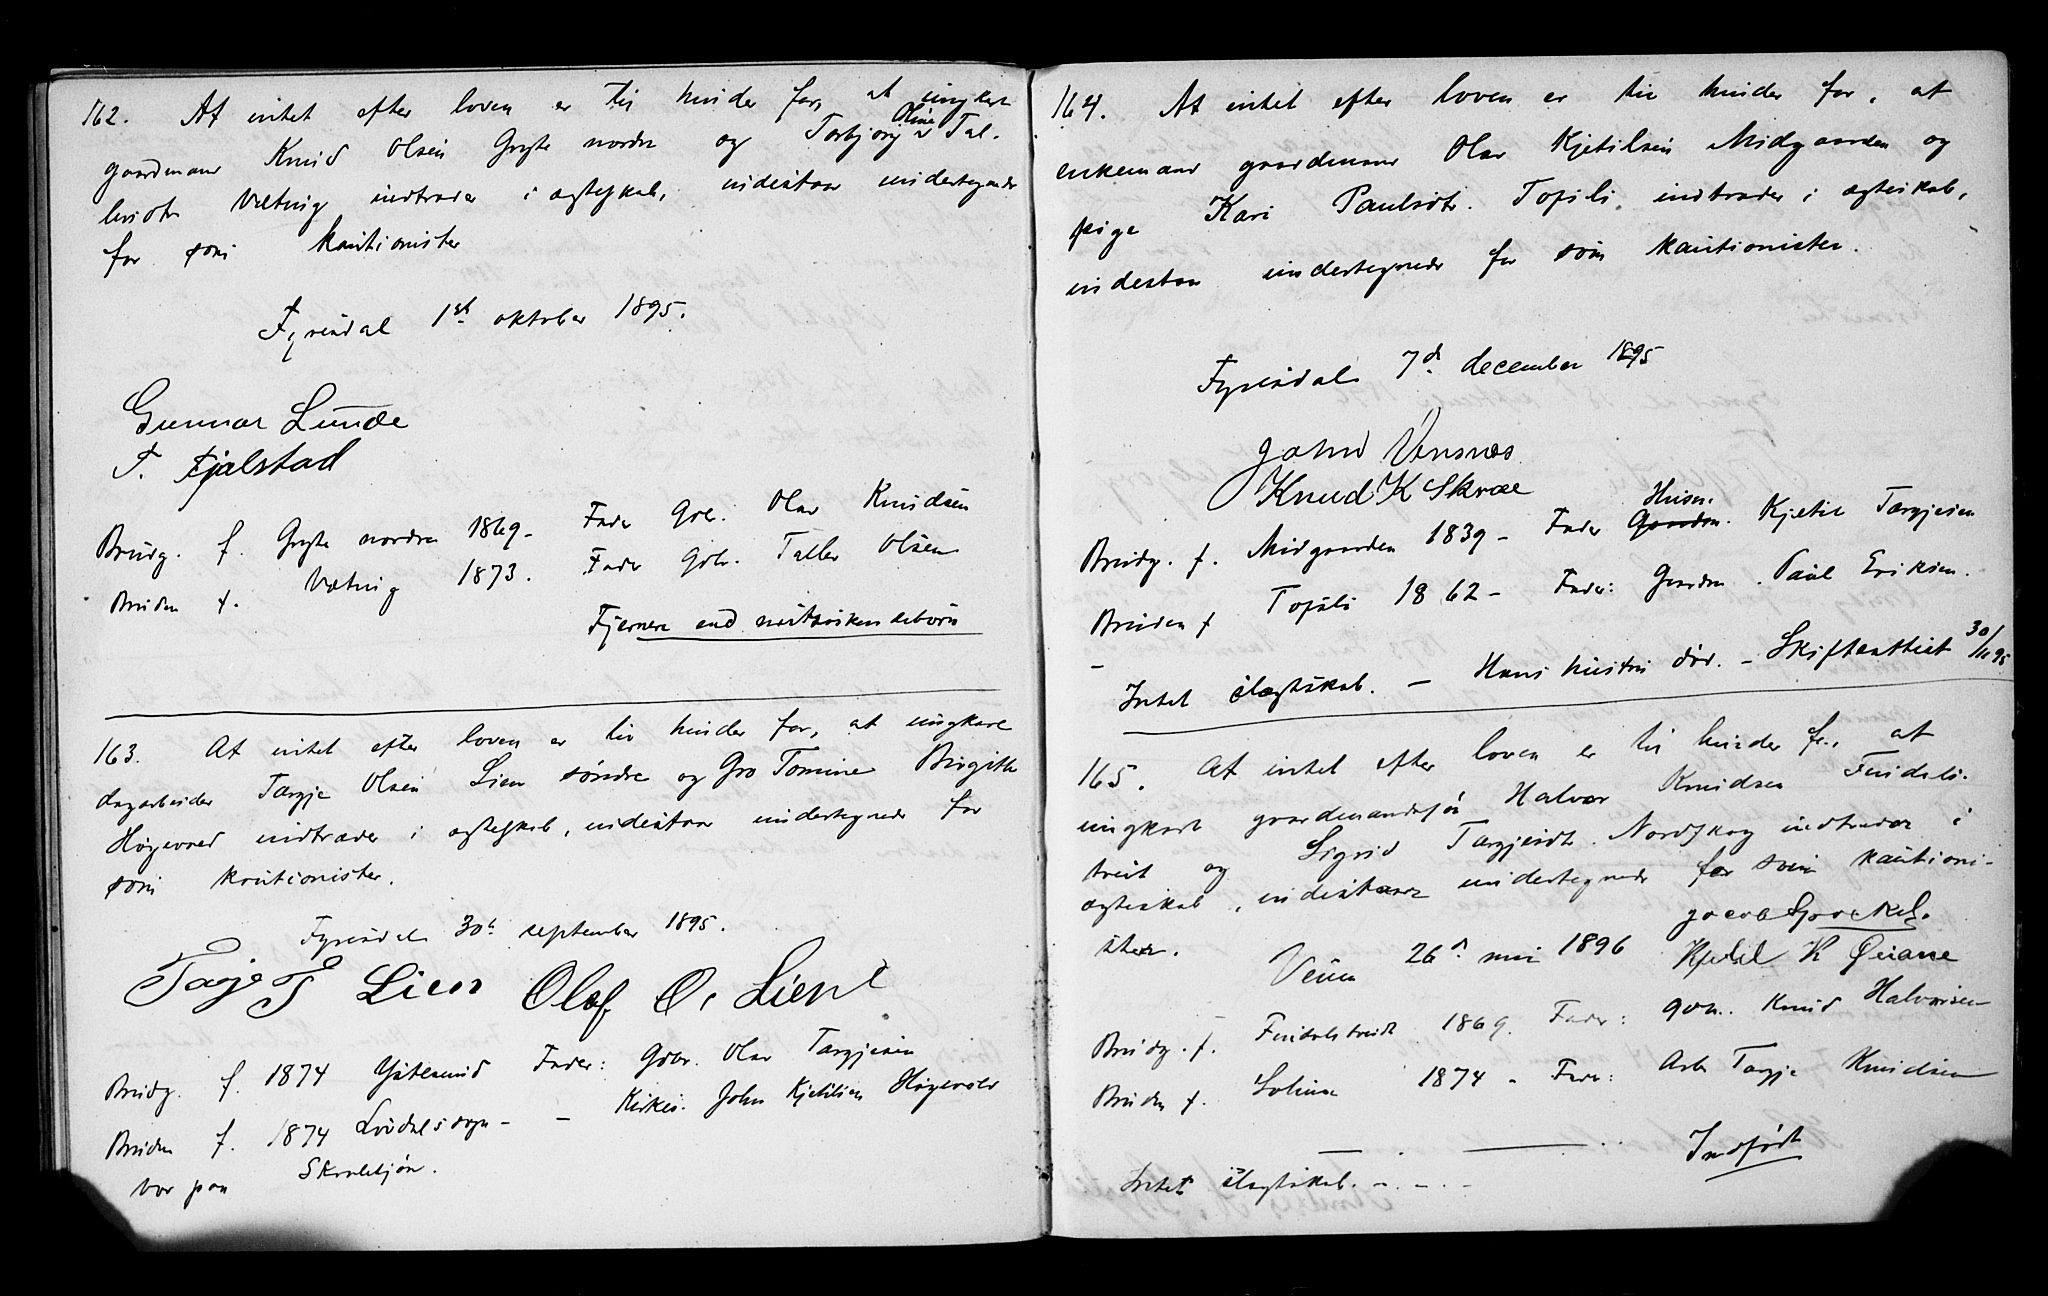 162. At intet efter loven er til hinder for, at ungkar
gaardmand Knud Olsen Gryte nordre og Torbjørg Oline Tal-
leivsdtr. Vetting indtræder i ægteskab, indestaar undertegnede
for som kautionister
Fyresdal 1st oktober 1895.
Gunnar Lunde
T. Fjalstad
Brudg. f. Gryte nordre 1869 - Fader Gbr. Olav Knudsen
Bruden f. Vetting 1873. Fader Gbr. Tallev Olsen
Fjernere end næstsøskendebørn
163. At intet efter loven er til hinder for, at ungkarl
dagarbeider Targje Olsen Lien søndre og Gro Tomine Birgitte
Høgevold indtræder i ægteskab, indestaar undertegnede for
som kautionister.
Fyresdal 30te september 1895.
Tarje T Lien Olaf O. Lient
Brudg. f. 1874 Fader: Gbr. Olav Targjesen
Bruden f. 1874 - Kirkes. John Kjetilsen Høgevold
var paa
164. At intet efter loven er til hinder for, at
enkemand gaardmand Olav Kjetilsen Midgaarden og
pige Kari Paulsdtr. Tofsli, indtræder i ægteskab,
indestaar undertegnede for som kautionister.
Fyresdal 7d december 1895
John Vensnes
Knud K Skræe
Brudg. f. Midgaarden 1839 - Fader Husm. Gaardm. Kjetil Targjesen
Bruden f Tofsli 1862 - Fader: Gaardm. Paul Eriksen.
- Intet slægtskab. - Hans hustru død. - Skifteattest 30/11 95
165. At intet efter loven er til hinder for, at
ungkarl gaardmandssøn Halvor Knudsen Findals-
treit og Sigrid Targjesdtr. Nordskog indtræder i
ægteskab, indestaar undertegnede for som kautioni-
ster.
Veum 26d mai 1896
Kjetil K Øiane
Brudg. f. Findalstreit 1869. Fader: gbr. Knud Halvorsen
Bruden f. 1874 - Fader: Arb. Targje Knudsen
Intet slægtskab. - . - . -
Indført